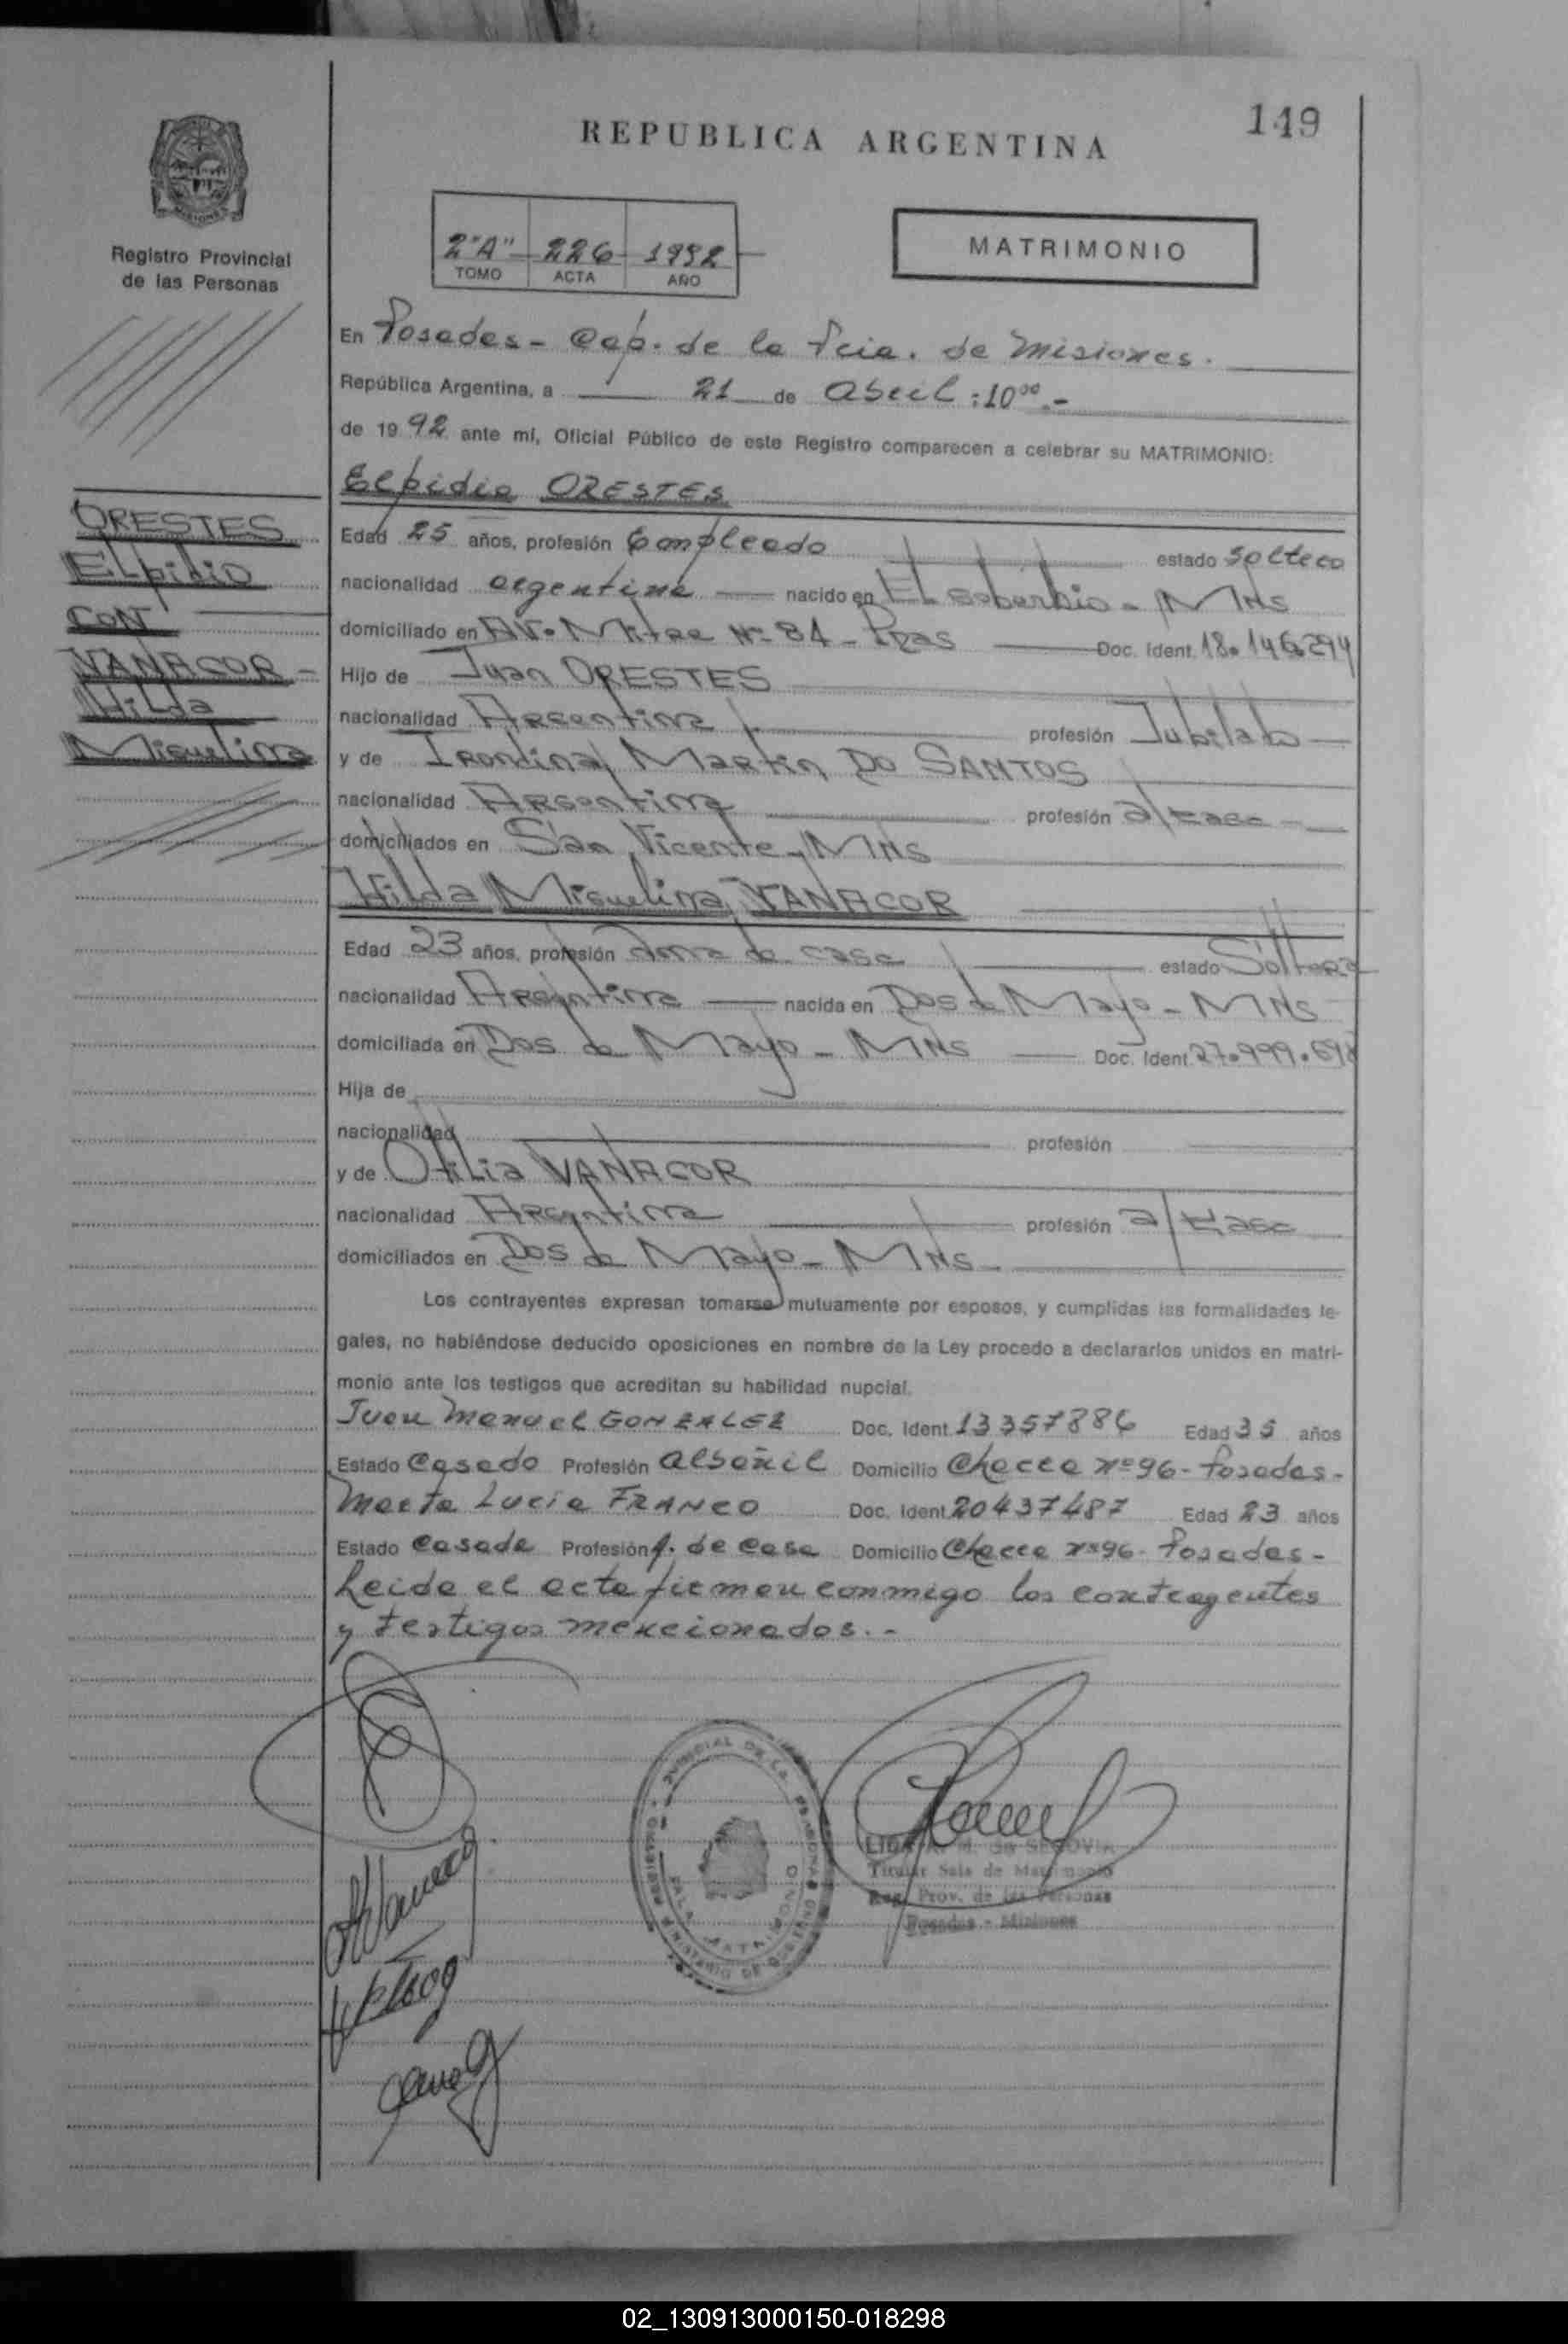 149
REPUBLICA ARGENTINA
MISIONES
Registro Provincial
de las Personas
2 "A" 226 1992
TOMO ACTA AÑO
MATRIMONIO
En Posadas - Cap. de la Pcia. de Misiones.
República Argentina, a 21 de Abril :10⁰⁰.-
de 1992 ante mí, Oficial Público de este Registro comparecen a celebrar su MATRIMONIO:
Elpidio ORESTES
ORESTES
Elpidio
CON
VANACOR -
Hilda
Miguelina
Edad 25 años, profesión Empleado estado soltero
nacionalidad argentina nacido en El soberbio - MNS
domiciliado en AV. Mitre Nº 84 - Pdas Doc. Ident. 18.146.294
Hijo de Juan ORESTES
nacionalidad Argentina profesión Jubilado
y de Irondina Martin DO SANTOS
nacionalidad Argentina profesión a/casa
domiciliados en San Vicente - MNS
Hilda Miguelina VANACOR
Edad 23 años, profesión ama de casa estado Soltera
nacionalidad Argentina nacida en Dos de Mayo - MNS
domiciliada en Dos de Mayo - MNS Doc. Ident. 27.999.698
Hija de
nacionalidad profesión
y de Otilia VANACOR
nacionalidad Argentina profesión a/casa
domiciliados en Dos de Mayo - MNS -
Los contrayentes expresan tomarse mutuamente por esposos, y cumplidas las formalidades le-
gales, no habiéndose deducido oposiciones en nombre de la Ley procedo a declararlos unidos en matri-
monio ante los testigos que acreditan su habilidad nupcial.
Juan Manuel GONZALEZ Doc. Ident. 13357886 Edad 35 años
Estado Casado Profesión albañil Domicilio Chacra nº 96 - Posadas -
Marta Lucia FRANCO Doc. Ident. 20437487 Edad 23 años
Estado Casada Profesión A. de casa Domicilio Chacra nº 96 - Posadas -
Leida el acta firman conmigo los contrayentes
y testigos mencionados. -
M. de SEGOVIA
Titular Sala de Matrimonio
Reg. Prov. de las Personas
Posadas - Misiones
02_130913000150-018298